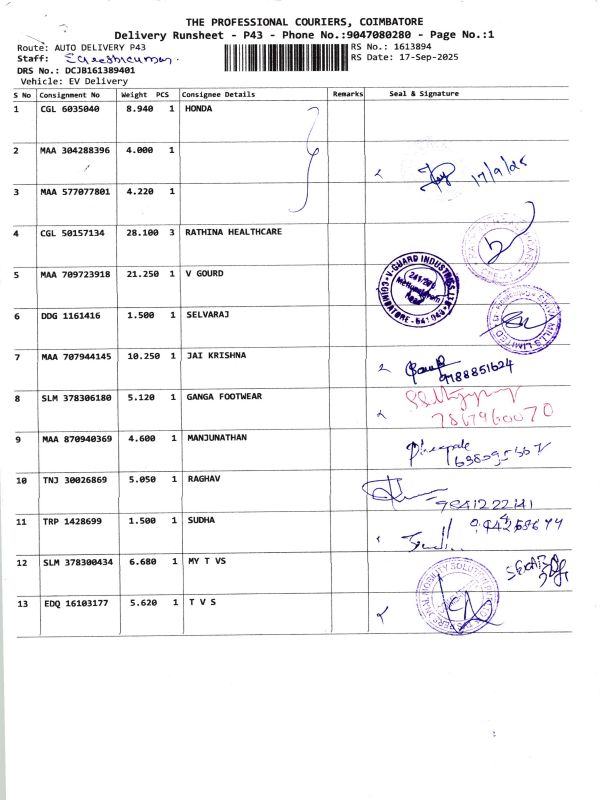 THE PROFESSIONAL COURIERS, COIMBATORE
Delivery Runsheet - P43 - Phone No.:9047080280 - Page No.:1
Route: AUTO DELIVERY P43
RS No.: 1613894
Staff:
RS Date: 17-Sep-2025
DRS No.: DCJB161389401
Vehicle: EV Delivery
S No Consignment No Weight PCS Consignee Details Remarks Seal & Signature
1 CGL 6035040 8.940 1 HONDA
2 MAA 304288396 4.000 1
17/9/25
3 MAA 577077801 4.220 1
4 CGL 50157134 28.100 3 RATHINA HEALTHCARE
5 MAA 709723918 21.250 1 V GOURD
V-GUARD INDUSTRIES LTD
COIMBATORE - 641
6 DDG 1161416 1.500 1 SELVARAJ
MILLS LIMITED
7 MAA 707944145 10.250 1 JAI KRISHNA
9188851624
8 SLM 378306180 5.120 1 GANGA FOOTWEAR
7867960070
9 MAA 870940369 4.600 1 MANJUNATHAN
10 TNJ 30026869 5.050 1 RAGHAV
11 TRP 1428699 1.500 1 SUDHA
12 SLM 378300434 6.680 1 MY T VS
MOBILITY SOLUTIONS
13 EDQ 16103177 5.620 1 T V S